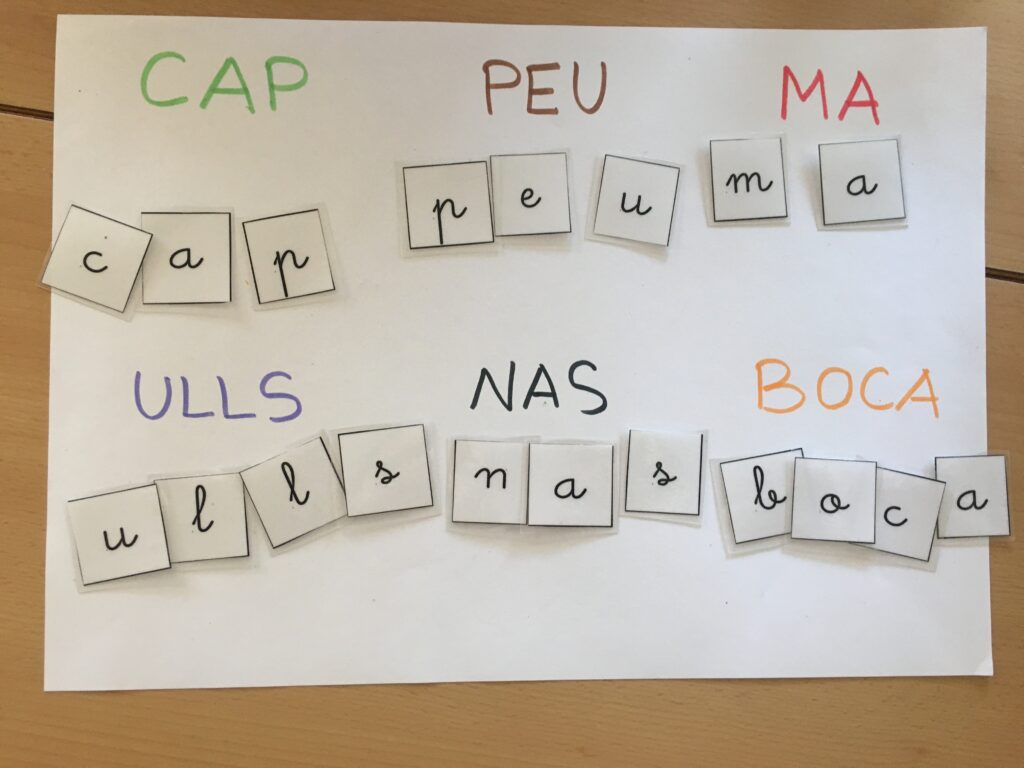 CAP PEU MA
cap peu ma
ULLS NAS BOCA
ulls nas boca